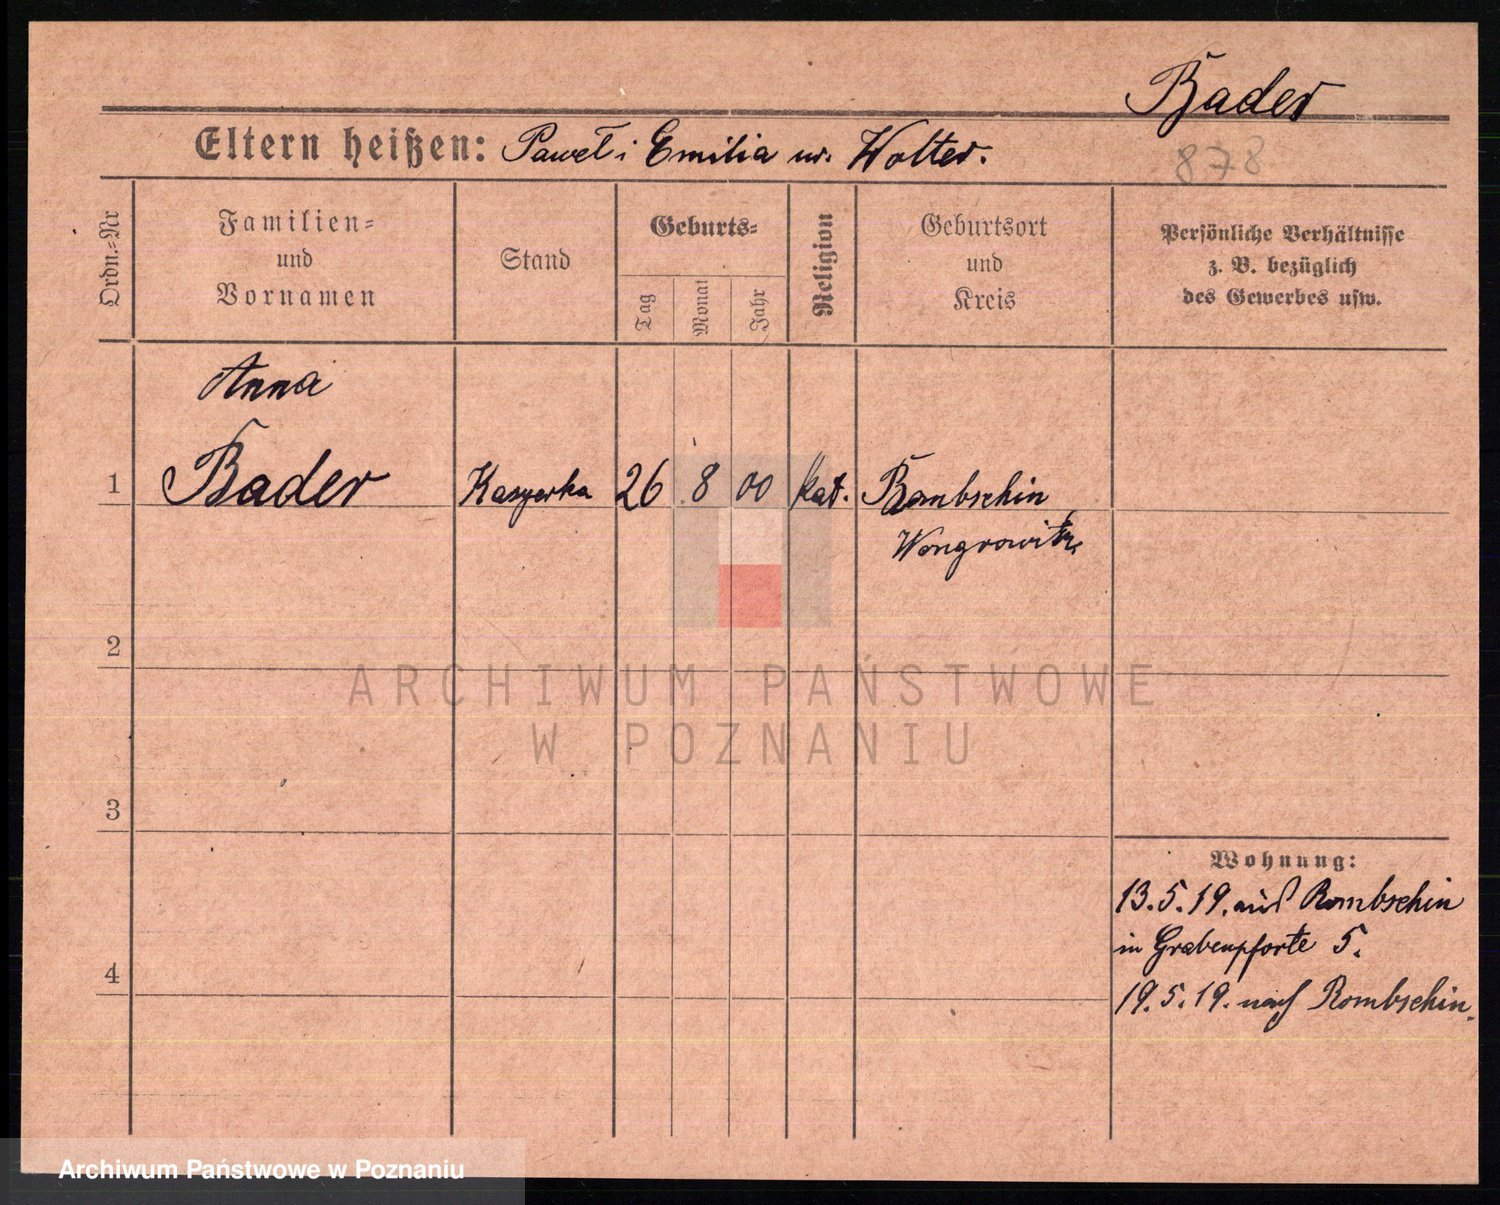 Bader
Eltern heißen: Paweł i Emilia ur. Wolter.
878
Ordn.=Nr
Familien=
und
Vornamen
Stand
Geburts=
Tag
Monat
Jahr
Religion
Geburtsort
und
Kreis
Persönliche Verhältnisse
z. B. bezüglich
des Gewerbes usw.
Anna
1 Bader Kasyerka 26 8 00 kat. Rombschin
Wongrowitz
2
3
4
Wohnung:
13.5.19. aus Rombschin
in Grabenpforte 5.
19.5.19. nach Rombschin.
ARCHIWUM PAŃSTWOWE
W POZNANIU
Archiwum Państwowe w Poznaniu